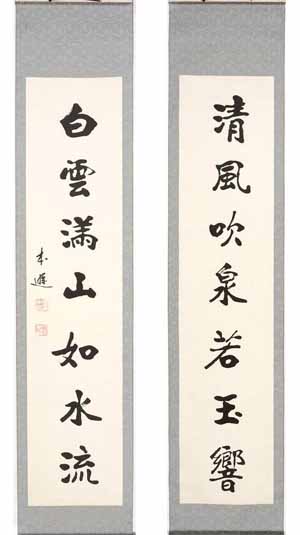 清風吹泉若玉響
白雲滿山如水流